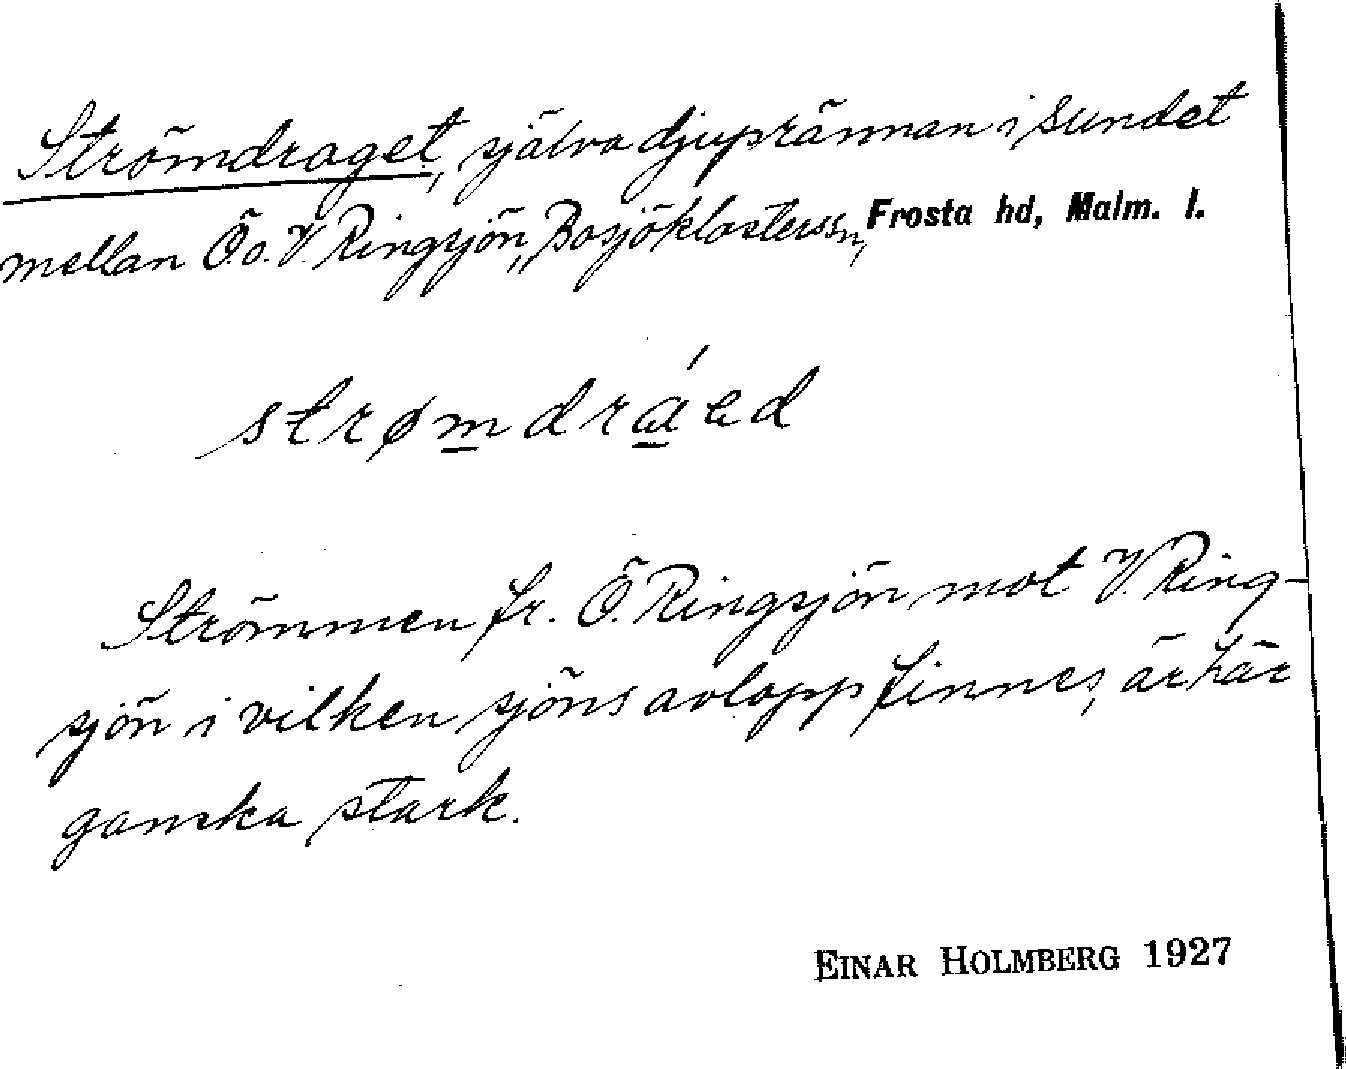 Strömdraget, själva djuprännan i sundet
mellan Ö. o. V. Ringsjön, Bosjöklosters sn, Frosta hd, Malm. l.
strømdráed
Strömmen fr. Ö. Ringsjön mot V. Ring-
sjön i vilken sjöns avlopp finnes, är här
ganska stark.
EINAR HOLMBERG 1927